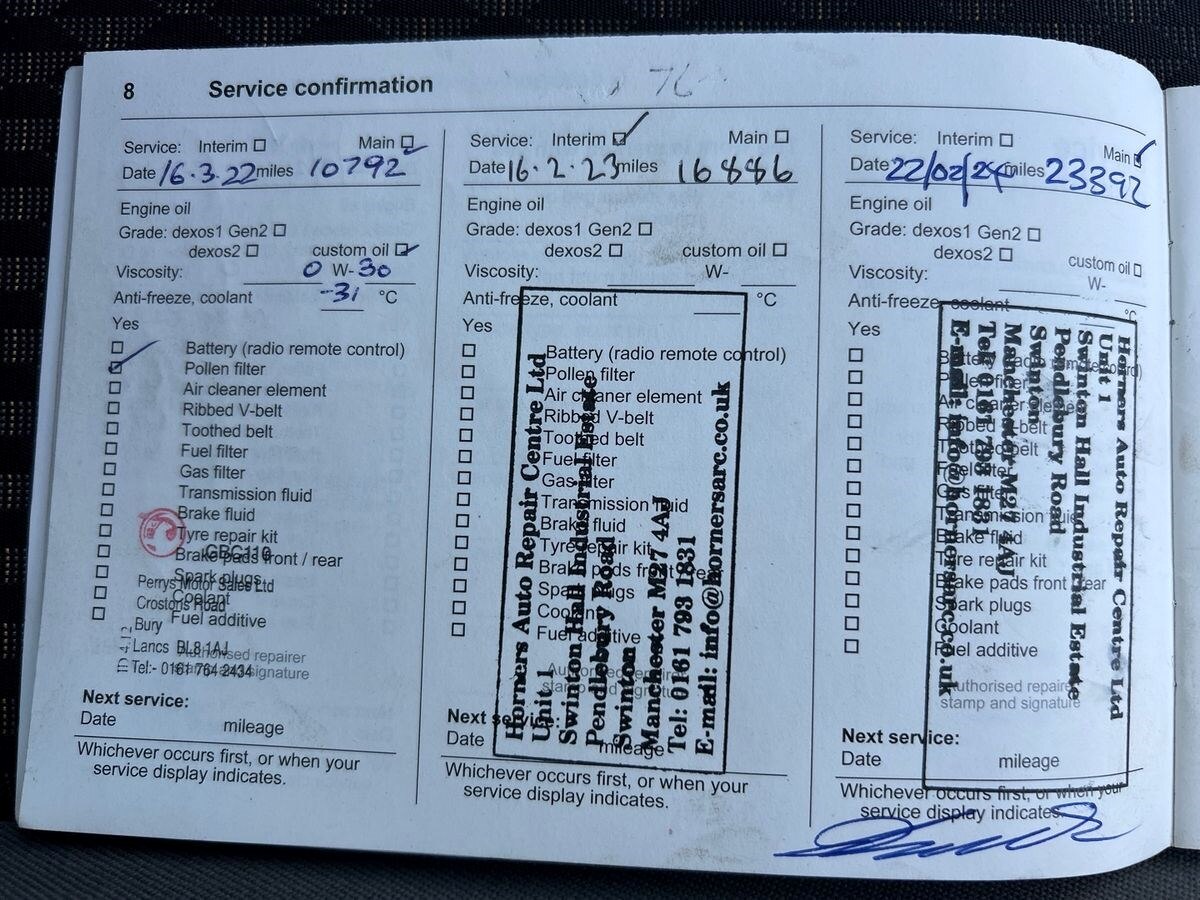 8 Service confirmation 76
Service: Interim ☐ Main ☑
Date 16.3.22 miles 10792
Engine oil
Grade: dexos1 Gen2 ☐
dexos2 ☐ custom oil ☑
Viscosity: 0 W- 30
Anti-freeze, coolant -31 °C
Yes
☐ Battery (radio remote control)
☑ Pollen filter
☐ Air cleaner element
☐ Ribbed V-belt
☐ Toothed belt
☐ Fuel filter
☐ Gas filter
☐ Transmission fluid
☐ Brake fluid
☐ Tyre repair kit
☐ Brake pads front / rear
☐ Spark plugs
☐ Coolant
☐ Fuel additive
GBC110
Perrys Motor Sales Ltd
Crostons Road
Bury
Lancs BL8 1AJ
Tel:- 0161 764 2434
Authorised repairer
stamp and signature
Next service:
Date mileage
Whichever occurs first, or when your
service display indicates.
Service: Interim ☑ Main ☐
Date 16.2.23 miles 16886
Engine oil
Grade: dexos1 Gen2 ☐
dexos2 ☐ custom oil ☐
Viscosity: W-
Anti-freeze, coolant °C
Yes
☐ Battery (radio remote control)
☐ Pollen filter
☐ Air cleaner element
☐ Ribbed V-belt
☐ Toothed belt
☐ Fuel filter
☐ Gas filter
☐ Transmission fluid
☐ Brake fluid
☐ Tyre repair kit
☐ Brake pads front / rear
☐ Spark plugs
☐ Coolant
☐ Fuel additive
Authorised repairer
stamp and signature
Horners Auto Repair Centre Ltd
Unit 1
Swinton Hall Industrial Estate
Pendlebury Road
Swinton
Manchester M27 4AJ
Tel: 0161 793 1831
E-mail: info@hornersarc.co.uk
Next service:
Date mileage
Whichever occurs first, or when your
service display indicates.
Service: Interim ☐ Main ☑
Date 22/02/24 miles 23392
Engine oil
Grade: dexos1 Gen2 ☐
dexos2 ☐
custom oil ☐
Viscosity: W-
Anti-freeze, coolant °C
Yes
☐ Battery (radio remote control)
☐ Pollen filter
☐ Air cleaner element
☐ Ribbed V-belt
☐ Toothed belt
☐ Fuel filter
☐ Gas filter
☐ Transmission fluid
☐ Brake fluid
☐ Tyre repair kit
☐ Brake pads front / rear
☐ Spark plugs
☐ Coolant
☐ Fuel additive
Authorised repairer
stamp and signature
Horners Auto Repair Centre Ltd
Unit 1
Swinton Hall Industrial Estate
Pendlebury Road
Swinton
Manchester M27 4AJ
Tel: 0161 793 1831
E-mail: info@hornersarc.co.uk
Next service:
Date mileage
Whichever occurs first, or when your
service display indicates.